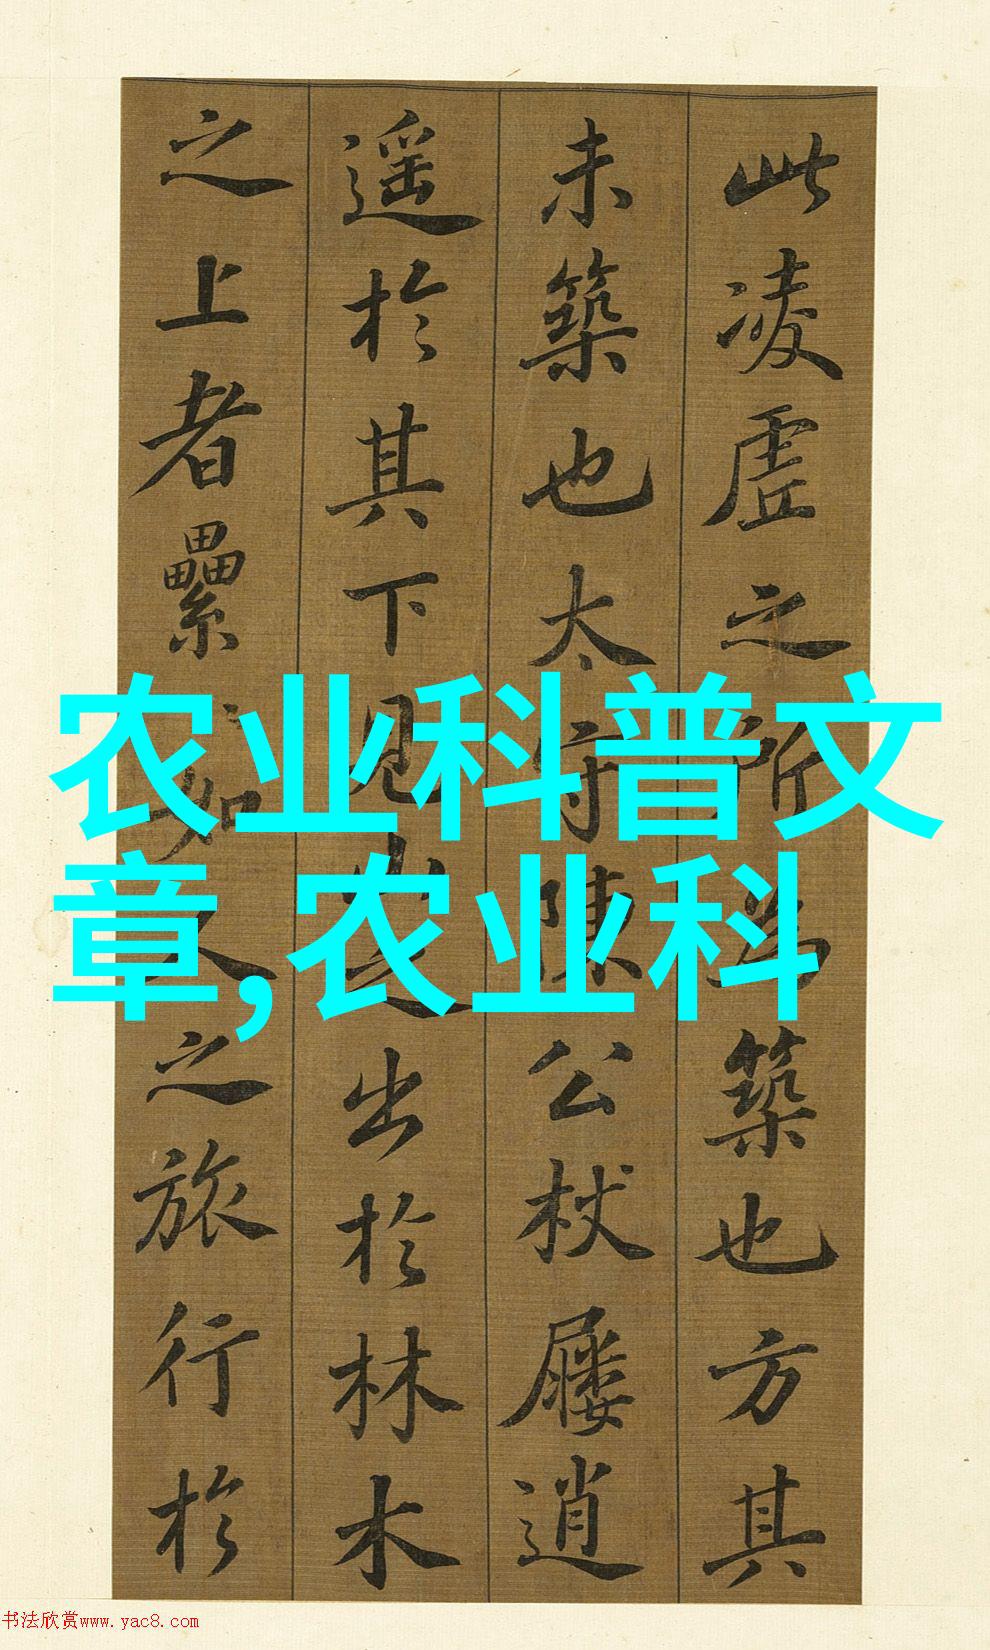 农业科普文
章,农业科
此凌虛之所為築也方其
未築也太守陳公杖屨逍
遥於其下見山之出於林木
之上者纍〻如人之旅行於
书法欣赏www.yac8.com